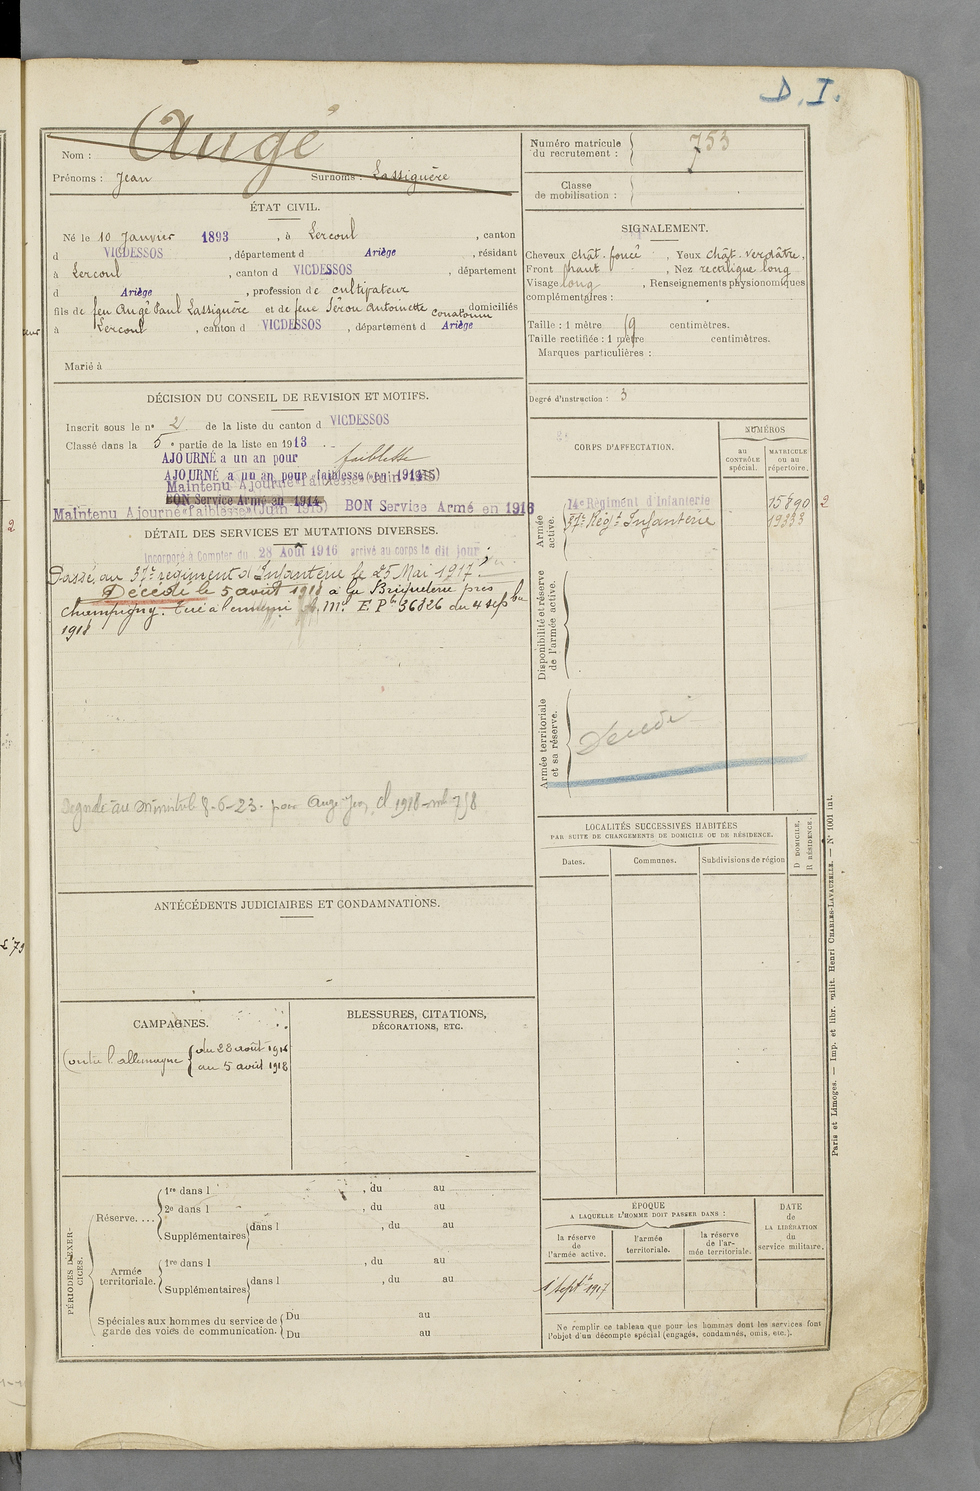 D. I.
Augé
Nom :
Prénoms : Jean Surnoms : Lassiguère
ÉTAT CIVIL.
Né le 10 Janvier 1893, à Lercoul, canton
d VICDESSOS, département d Ariège, résidant
à Lercoul, canton d VICDESSOS, département
d Ariège, profession de cultivateur
fils de feu Augé Paul Lassiguère et de feue Séron Antoinette domiciliés
à Lercoul, canton d VICDESSOS, département d Ariège
Marié à
Numéro matricule du recrutement : 753
Classe de mobilisation :
SIGNALEMENT.
Cheveux chât. foncé, Yeux chât. verdâtre,
Front haut, Nez rectiligne long
Visage long, Renseignements physionomiques
complémentaires :
Taille : 1 mètre 69 centimètres.
Taille rectifiée : 1 mètre centimètres.
Marques particulières :
Degré d'instruction : 3
DÉCISION DU CONSEIL DE REVISION ET MOTIFS.
Inscrit sous le n° 2 de la liste du canton d VICDESSOS
Classé dans la 5e partie de la liste en 1913
AJOURNÉ a un an pour faiblesse
AJOURNÉ a un an pour faiblesse (en 1914)
Maintenu Ajourné "faiblesse" (Juin 1915)
BON Service Armé en 1914
Maintenu Ajourné "faiblesse" (Juin 1915) BON Service Armé en 1916
DÉTAIL DES SERVICES ET MUTATIONS DIVERSES.
Incorporé à Compter du 28 Août 1916 arrivé au corps le dit jour
Passé au 37e régiment d'Infanterie le 25 Mai 1917
Décédé le 5 avril 1918 à la Briqueterie près
Champigny. Tué à l'ennemi A. Mel E. Pe 36826 du 4 septbre
1918
8-6-23. pour Augé Jean cl 1918 mle 758
CORPS D'AFFECTATION.
NUMÉROS
AU CONTRÔLE spécial.
MATRICULE OU AU répertoire.
Armée active.
14e Régiment d'Infanterie 15890 2
37e Régt Infanterie 19333
Disponibilité et réserve de l'armée active.
Armée territoriale et sa réserve.
Décédé
LOCALITÉS SUCCESSIVES HABITÉES
PAR SUITE DE CHANGEMENTS DE DOMICILE OU DE RÉSIDENCE.
Dates.
Communes.
Subdivisions de région
D DOMICILE, R RÉSIDENCE.
ANTÉCÉDENTS JUDICIAIRES ET CONDAMNATIONS.
CAMPAGNES.
Contre l'allemagne { du 28 août 1916
au 5 avril 1918
BLESSURES, CITATIONS,
DÉCORATIONS, ETC.
PÉRIODES D'EXERCICES.
Réserve....
1re dans l , du au
2e dans l , du au
Supplémentaires dans l , du au
Armée territoriale.
1re dans l , du au
Supplémentaires dans l , du au
Spéciales aux hommes du service de garde des voies de communication.
Du au
Du au
EPOQUE
A LAQUELLE L'HOMME DOIT PASSER DANS :
la réserve de l'armée active.
l'armée territoriale.
la réserve de l'armée territoriale.
DATE de LA LIBÉRATION du service militaire.
1 Septbre 1917
Ne remplir ce tableau que pour les hommes dont les services font
l'objet d'un décompte spécial (engagés, condamnés, omis, etc.).
Paris et Limoges. — Imp. et libr. milit. Henri CHARLES-LAVAUZELLE. — N° 1001 int.